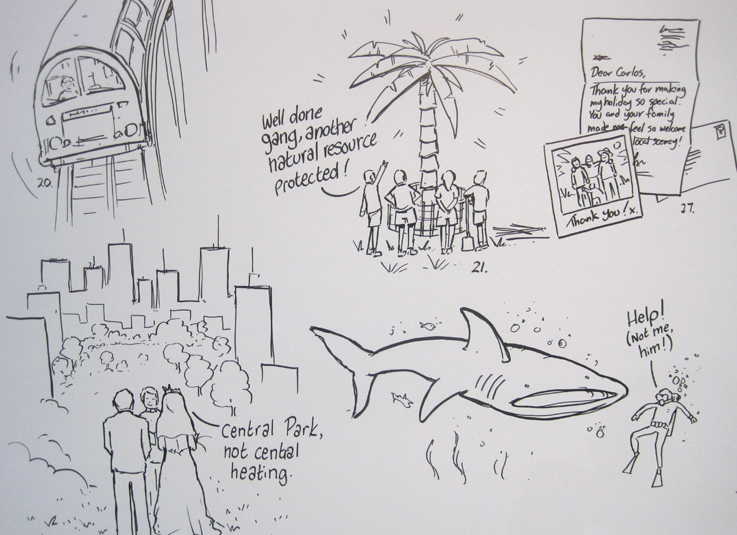 20.
Well done
gang, another
natural resource
protected!
21.
Dear Carlos,
Thank you for making
my holiday so special.
You and your family
made me feel so welcome
local scenery!
Thank you! x.
27.
Central Park,
not cental
heating.
Help!
(Not me,
him!)